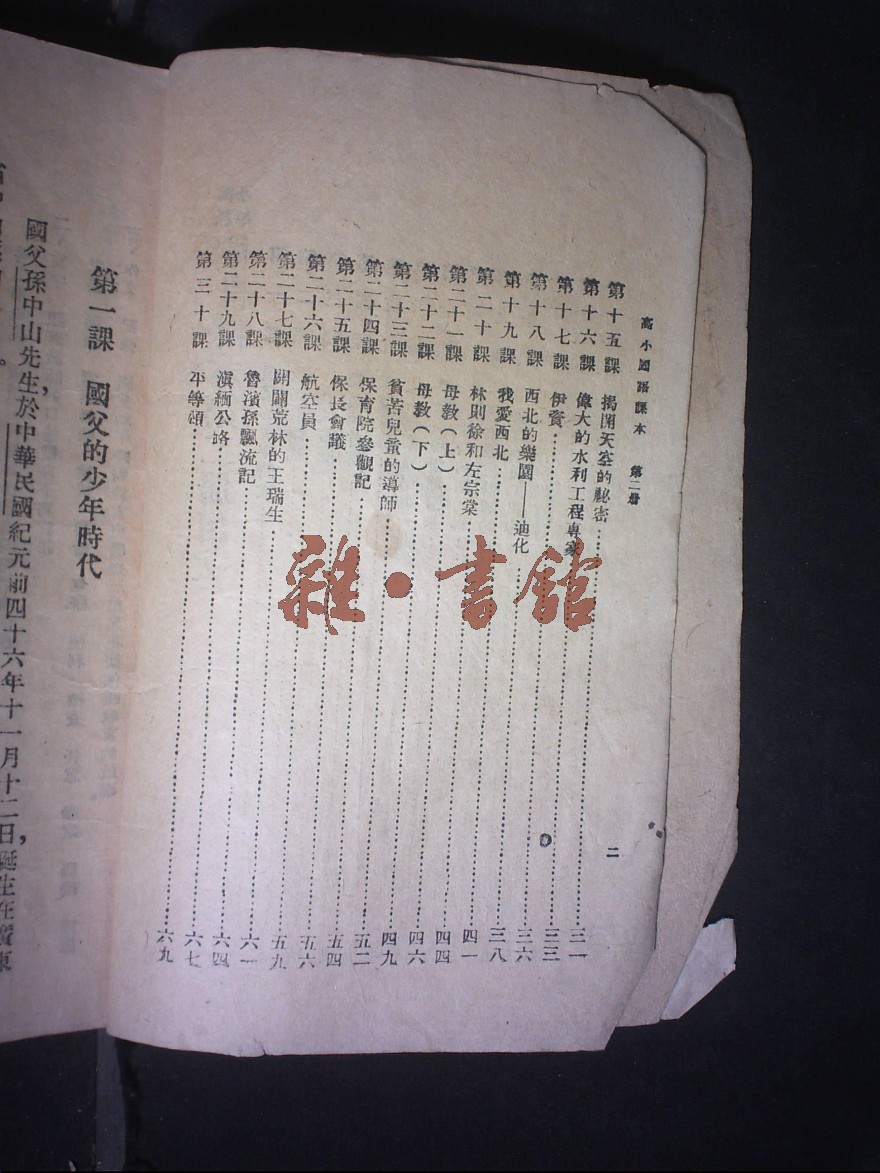 高小國語課本 第二册
二
第十五課 揭開天空的祕密 三一
第十六課 偉大的水利工程專家 三三
第十七課 伊資 三六
第十八課 西北的樂園——迪化 三八
第十九課 我愛西北 四一
第二十課 林則徐和左宗棠 四四
第二十一課 母教(上) 四六
第二十二課 母教(下) 四九
第二十三課 貧苦兒童的導師 五二
第二十四課 保育院參觀記 五四
第二十五課 保長會議 五六
第二十六課 航空員 五九
第二十七課 開闢荒林的王瑞生 六一
第二十八課 魯濱孫飄流記 六四
第二十九課 滇緬公路 六七
第三十課 平等頌 六九
雜·書館
第一課 國父的少年時代
國父孫中山先生,於中華民國紀元前四十六年十一月十二日,誕生在廣東